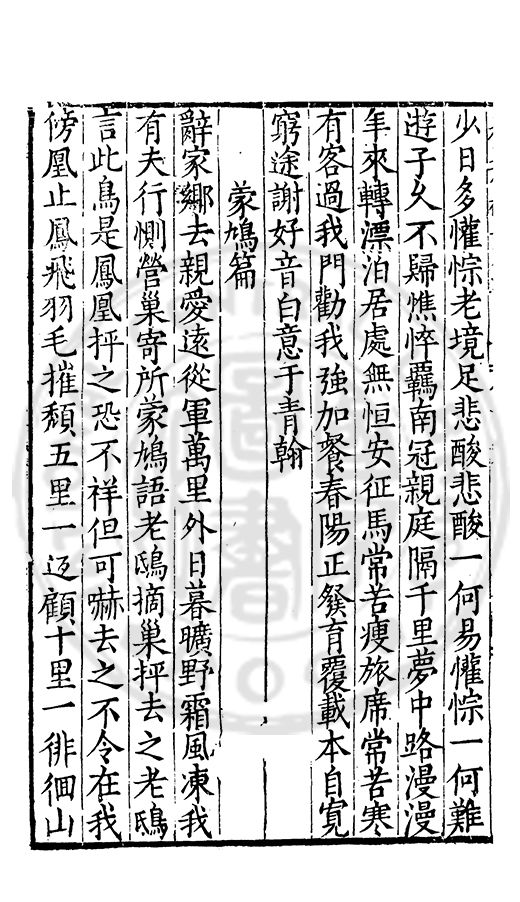 少日多懽悰老境足悲酸悲酸一何易懽悰一何難
遊子久不歸憔悴羈南冠親庭隔千里夢中路漫漫
年來轉漂泊居處無恒安征馬常苦瘦旅席常苦寒
有客過我門勸我強加餐春陽正發育覆載本自寬
窮途謝好音白意于青翰
蒙鳩篇
辭家鄉去親愛遠從軍萬里外日暮曠野霜風凍我
有夫行惻營巢寄所蒙鳩語老鴟摘巢抨去之老鴟
言此鳥是鳳凰抨之恐不祥但可嚇去之不令在我
傍凰止鳳飛羽毛摧頹五里一返顧十里一徘徊山